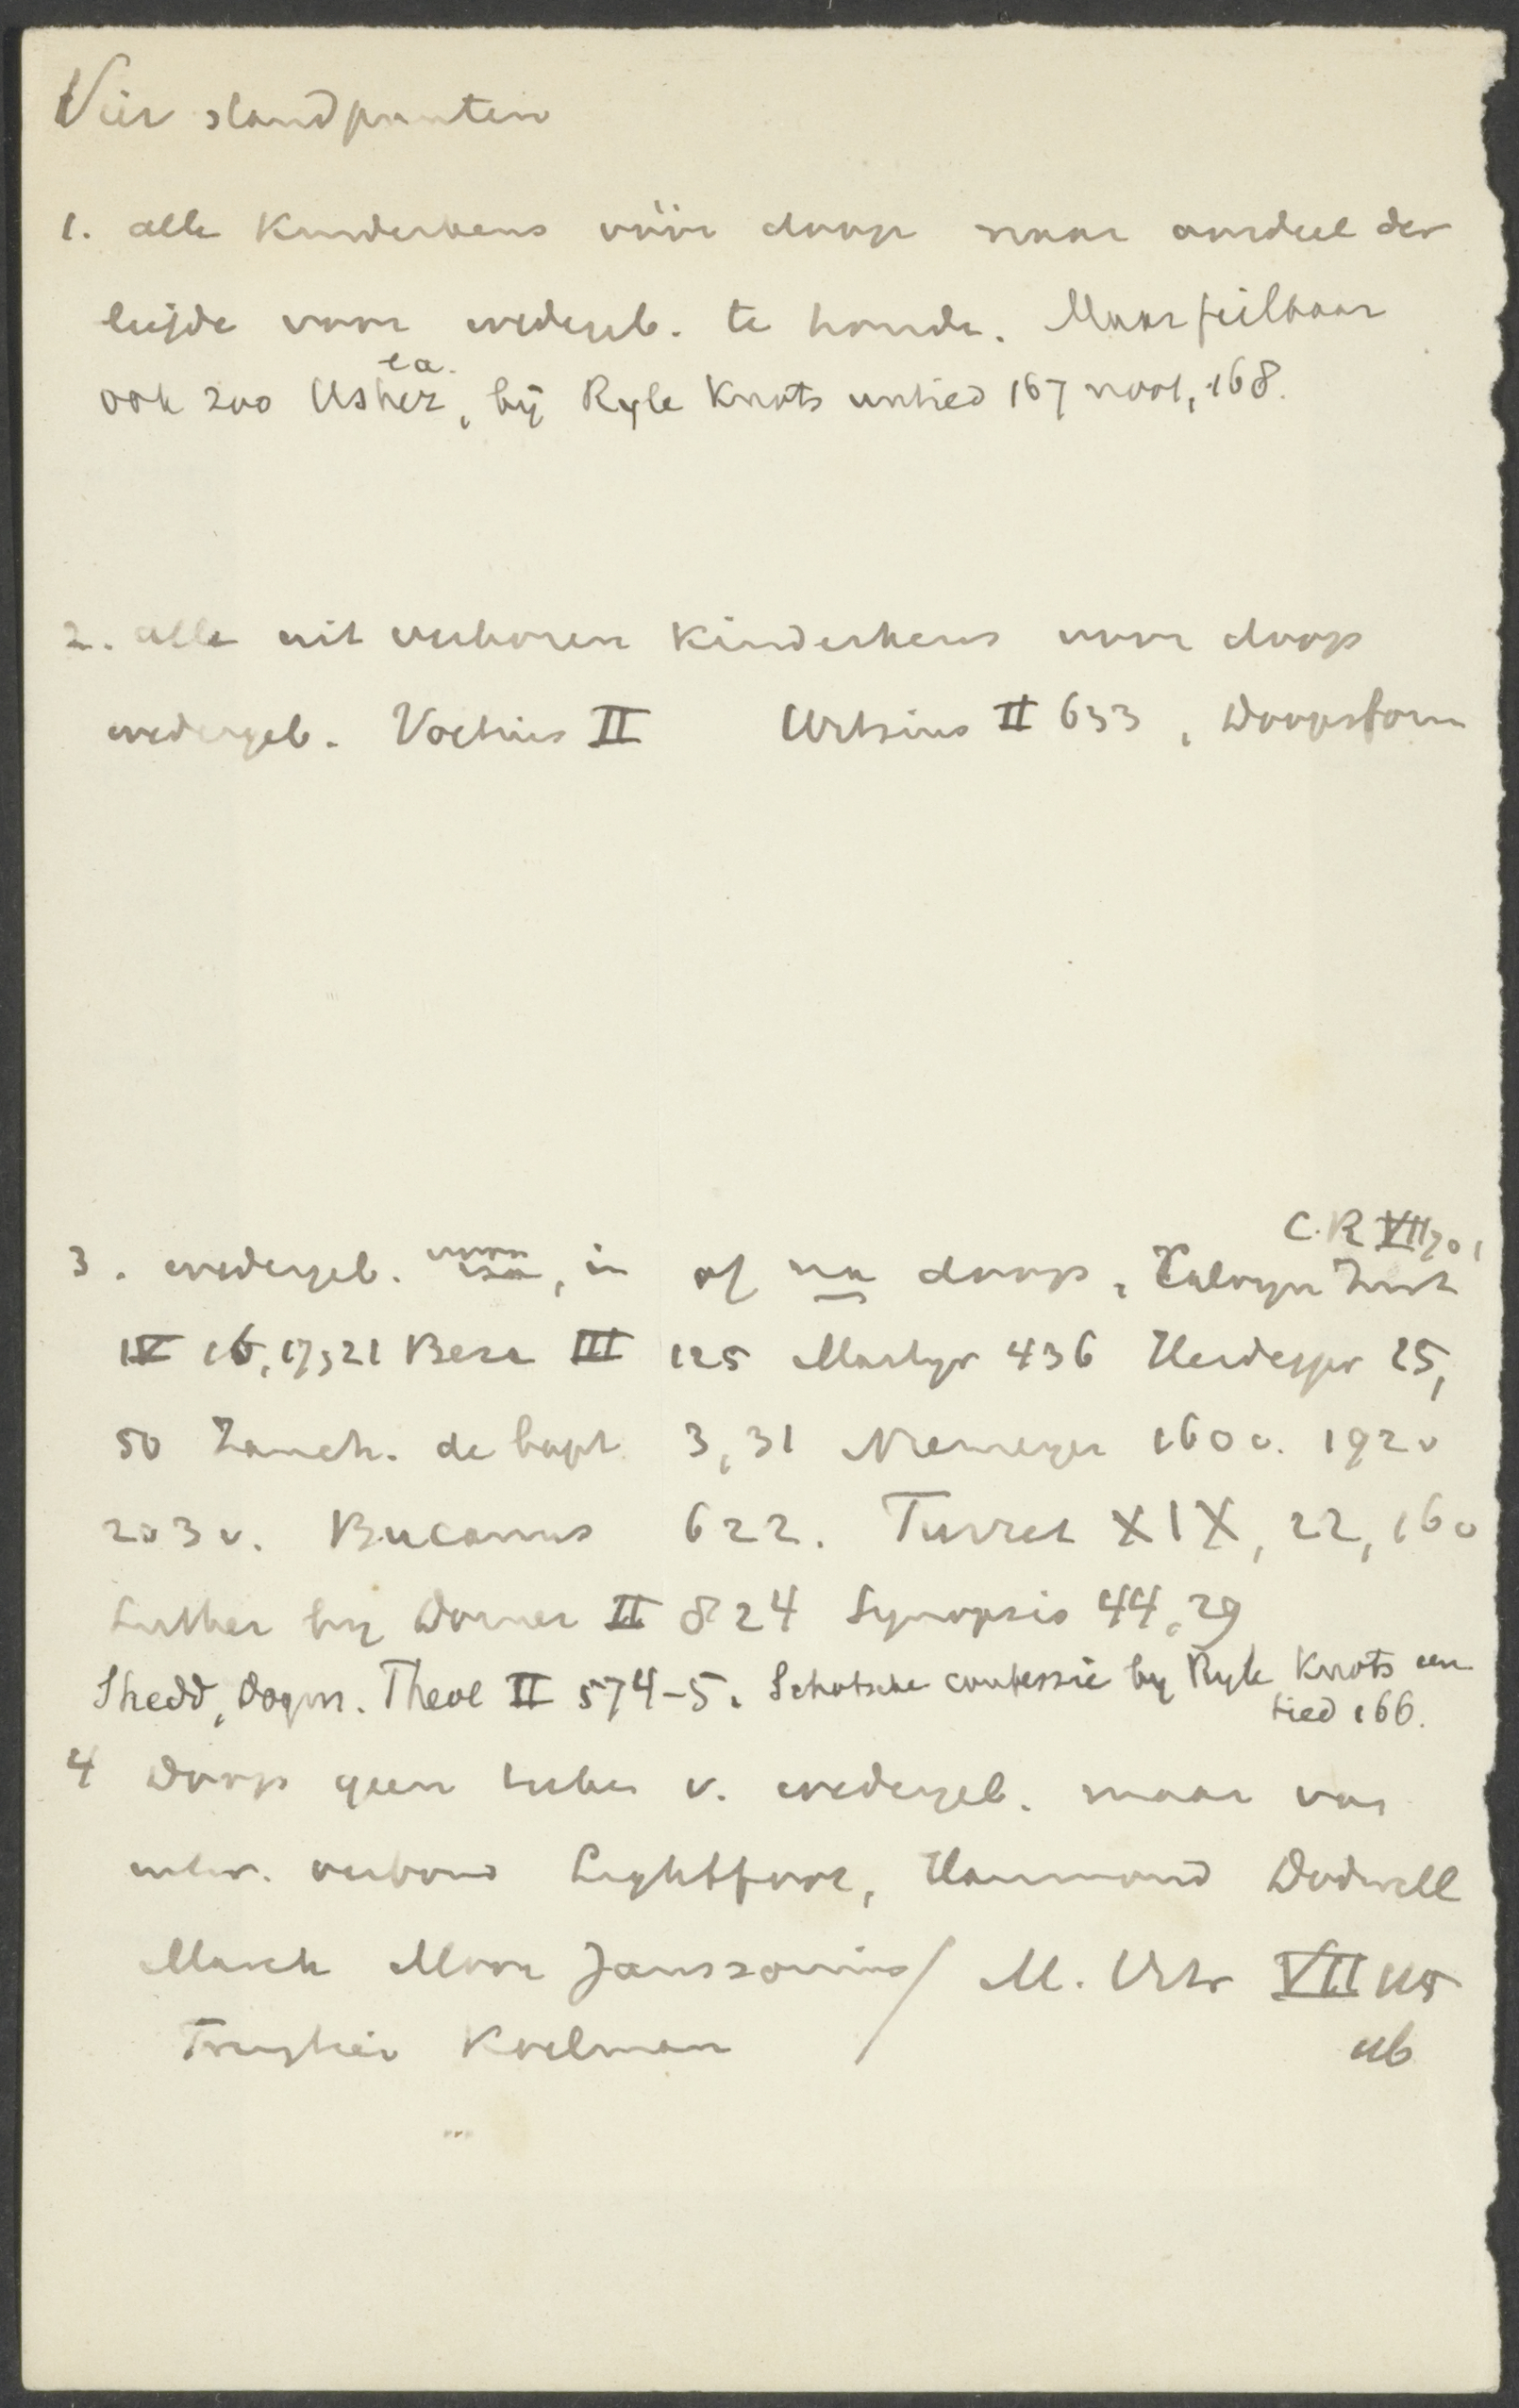 Vier standpunten
1. alle kinderkens vóór doop naar oordeel der
liefde voor wedergeb. te houden. Maar feilbaar
ook zoo Usher e.a., bij Ryle Knots untied 167 noot, 168.
2. alle uit verkoren kinderkens voor doop
wedergeb. Voetius II Ursinus II 633, Doopsform
C.R VII 701
3. wedergeb. voor, in of na doop, Calvyn Inst
IV 16, 17, 21 Beza III 125 Martyr 436 Heidegger 25,
50 Zanch. de bapt. 3, 31 Niemeyer 160v. 192v
203v. Bucanus 622. Turret XIX, 22, 160
Luther by Dorner II 824 Synopsis 44, 29
Shedd, Dogm. Theol II 574-5. Schotsche confessie by Ryle Knots un
tied 166.
4 Doop geen teeken v. wedergeb. maar van
uitw. verbond Lightfoot, Hammond Dodwell
March Moor Janssonius / M. Vitr VII 115
Koelman 116